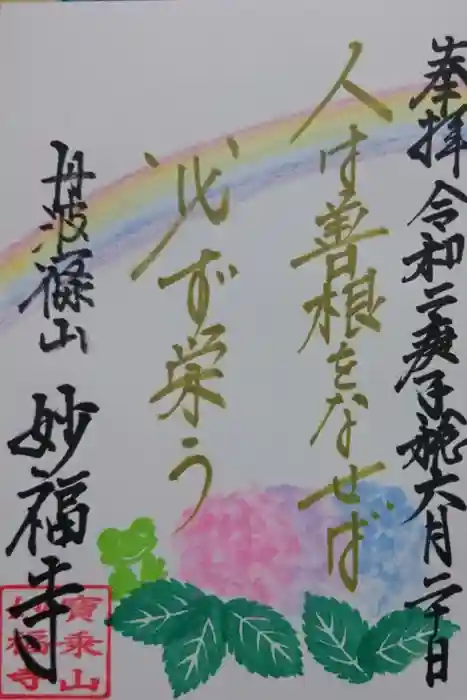 奉拝 令和二庚子歳六月二十日
人は善根をなせば
必ず栄う
丹波篠山
妙福寺
寶乗山
妙福寺